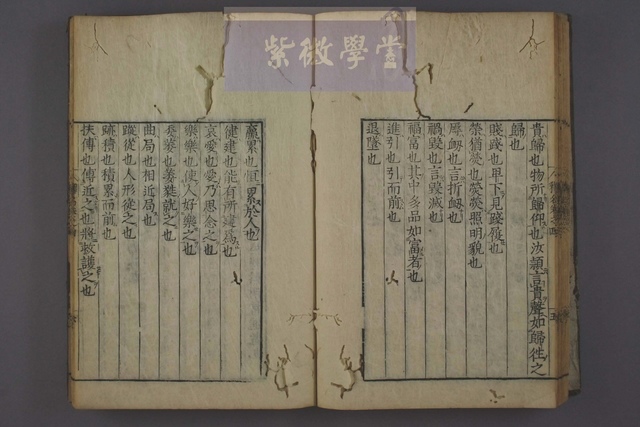 紫微學堂
貴歸也物所歸仰也汝潁言貴聲如歸往之
歸也
賤踐也卑下見踐履也
榮猶熒也熒熒照明貌也
辱衂也言折衂也
禍毀也言毀滅也
福富也其中多品如富者也
進引也引而前也
退墜也
羸累也恒累於人也
健建也能有所建爲也
哀愛也愛乃思念之也
樂樂也使人好樂之也
委萎也萎蕤就之也
曲局也相近局也
蹤從也人形從之也
跡積也積累而前也
扶傅也傅近之也將救護之也